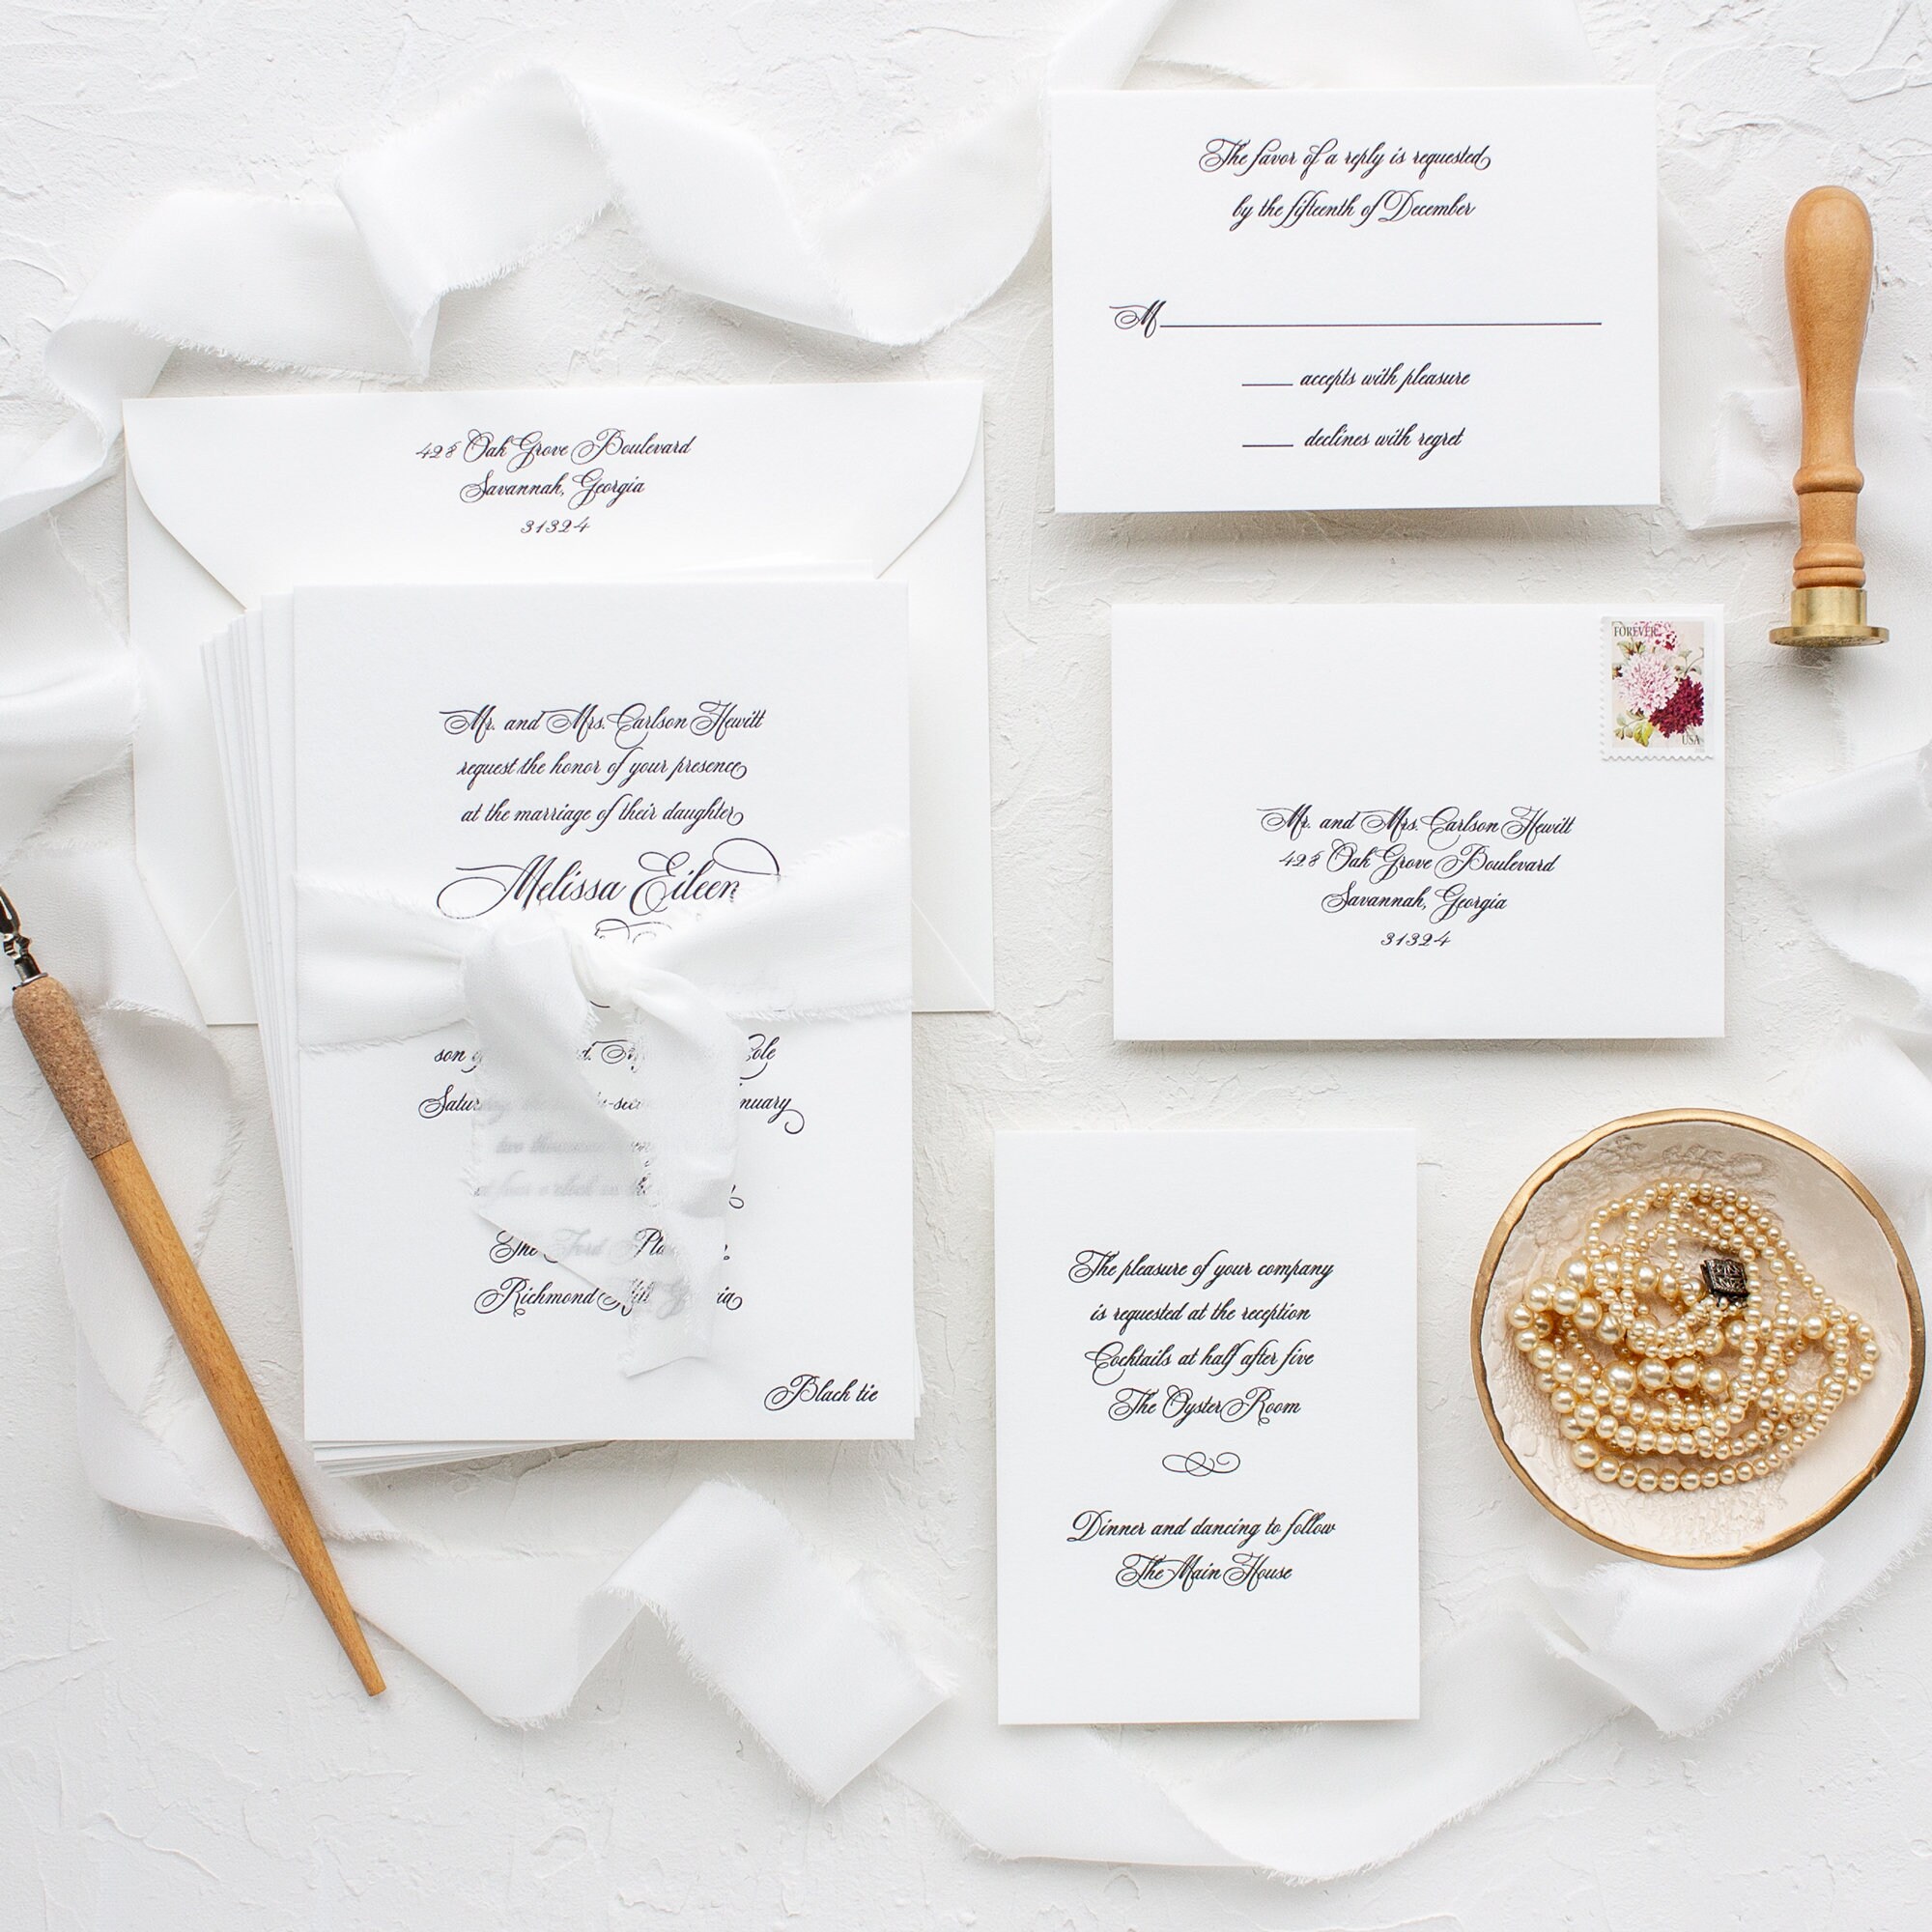 The favor of a reply is requested
by the fifteenth of December
M
accepts with pleasure
declines with regret
428 Oak Grove Boulevard
Savannah, Georgia
31324
Mr. and Mrs. Carlson Hewitt
request the honor of your presence
at the marriage of their daughter
Melissa Eileen
son
Saturday
at four o'clock in the
The Ford Pla
Richmond Hill Georgia
Black tie
FOREVER
USA
Mr. and Mrs. Carlson Hewitt
428 Oak Grove Boulevard
Savannah, Georgia
31324
The pleasure of your company
is requested at the reception
Cocktails at half after five
The Oyster Room
Dinner and dancing to follow
The Main House